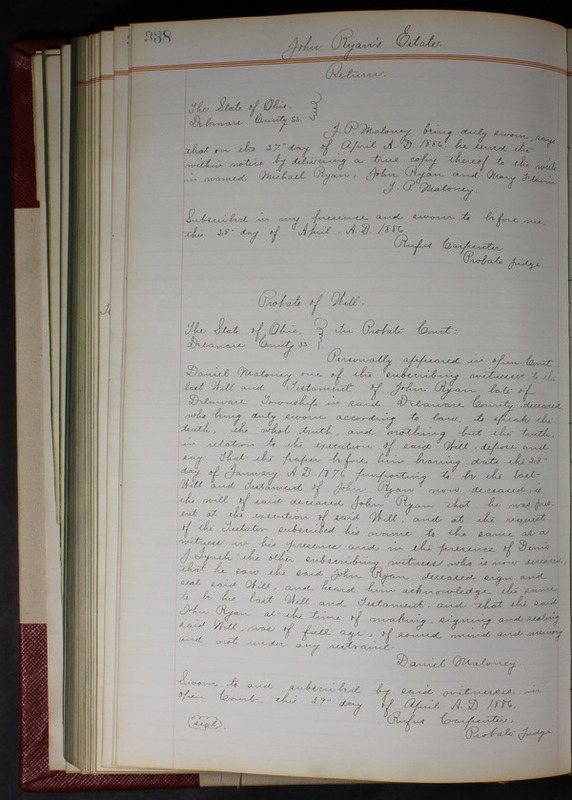 338
John Ryan's Estate.
Return.
The State of Ohio.
Delaware County ss
J. P. Maloney being duly sworn, says
that on the 27" day of April A.D. 1886 he served the
within notice by delivering a true copy thereof to the with
in named Michael Ryan, John Ryan and Mary
J. P. Maloney.
Subscribed in my presence and sworn to before me
this 28" day of April A.D. 1886
Rufus Carpenter
Probate Judge.
Probate of Will.
The State of Ohio. In Probate Court:
Delaware County ss.
Personally appeared in open Court
Daniel Maloney one of the subscribing witnesses to the
last Will and Testament of John Ryan late of
Delaware Township in said Delaware County, deceased
who being duly sworn according to law, to speak the
truth, the whol truth and nothing but the truth.
in relation to the execution of said Will, depose and
say: That the paper before him bearing date the 28"
day of January A.D. 1876 purporting to be the last
Will and Testament of John Ryan now deceased, is
the will of said deceased John Ryan that he was pres-
ent at the execution of said Will, and at the request
of the Testator subscribed his name to the same as a
witness in his presence and in the presence of Denis
J Lynch the other subscribing witness who is now deceased,
that he saw the said John Ryan deceased sign and
seal said Will, and heard him acknowledge the same
to be his last Will and Testament, and that the said
John Ryan at the time of making, signing and sealing
said Will, was of full age, of sound mind and memory
and not under any restraint.
Daniel Maloney
Sworn to and subscribed by said witnesses in
open Court, this 29" day of April A.D. 1886.
Rufus Carpenter.
Seal
Probate Judge